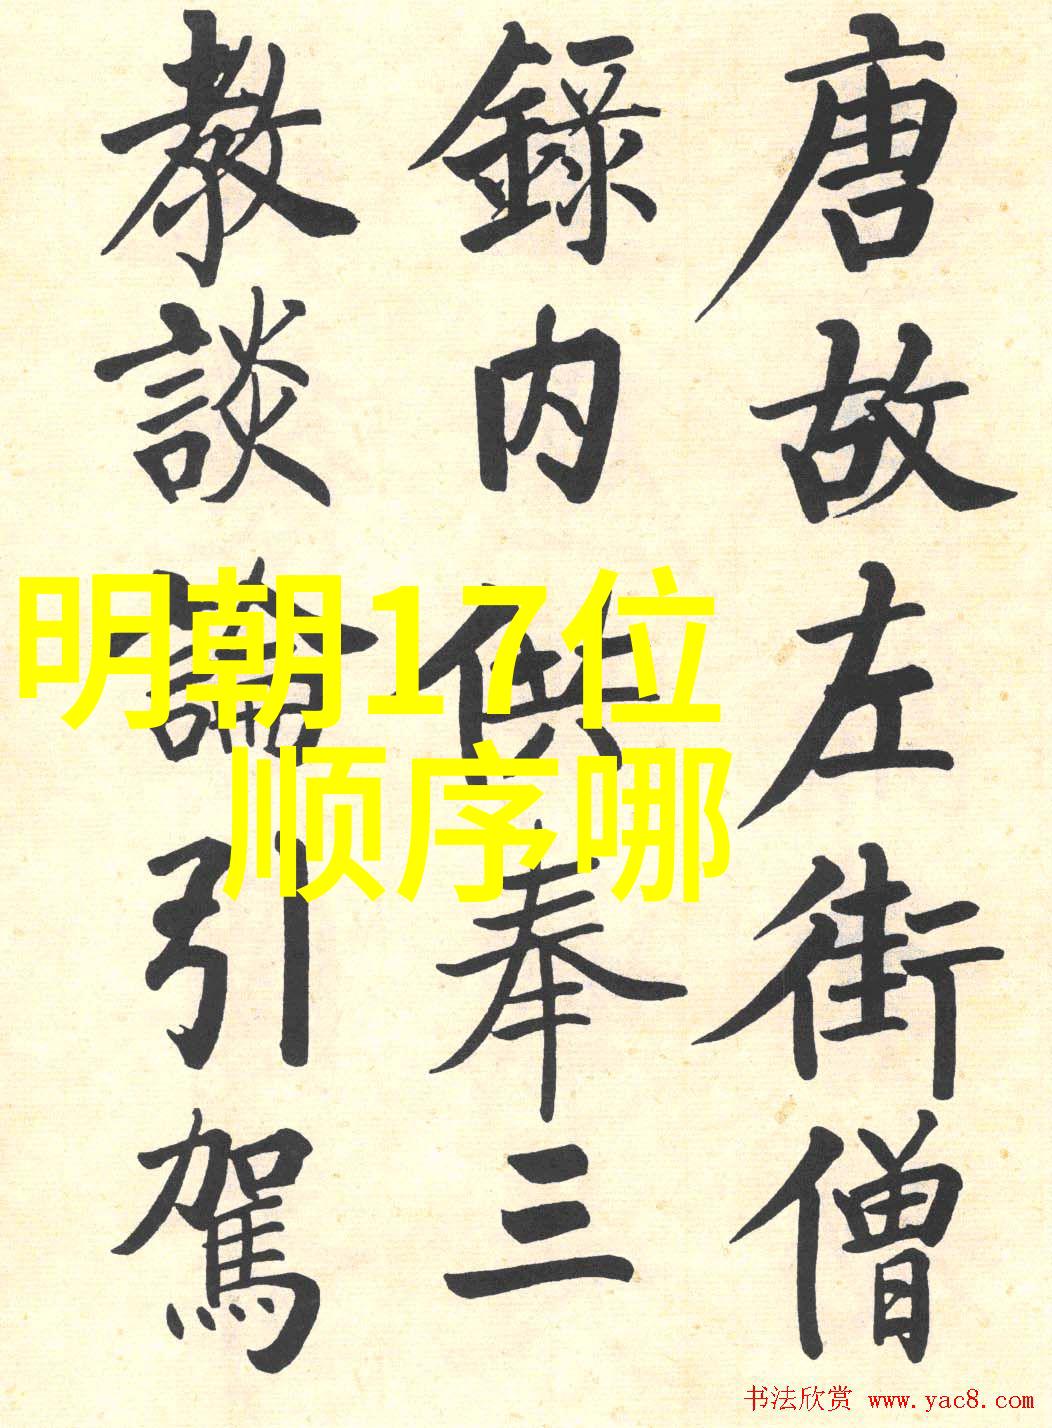 唐故左街僧
錄内供奉三
教談論引駕
明朝17位
顺序哪
书法欣赏 www.yac8.com